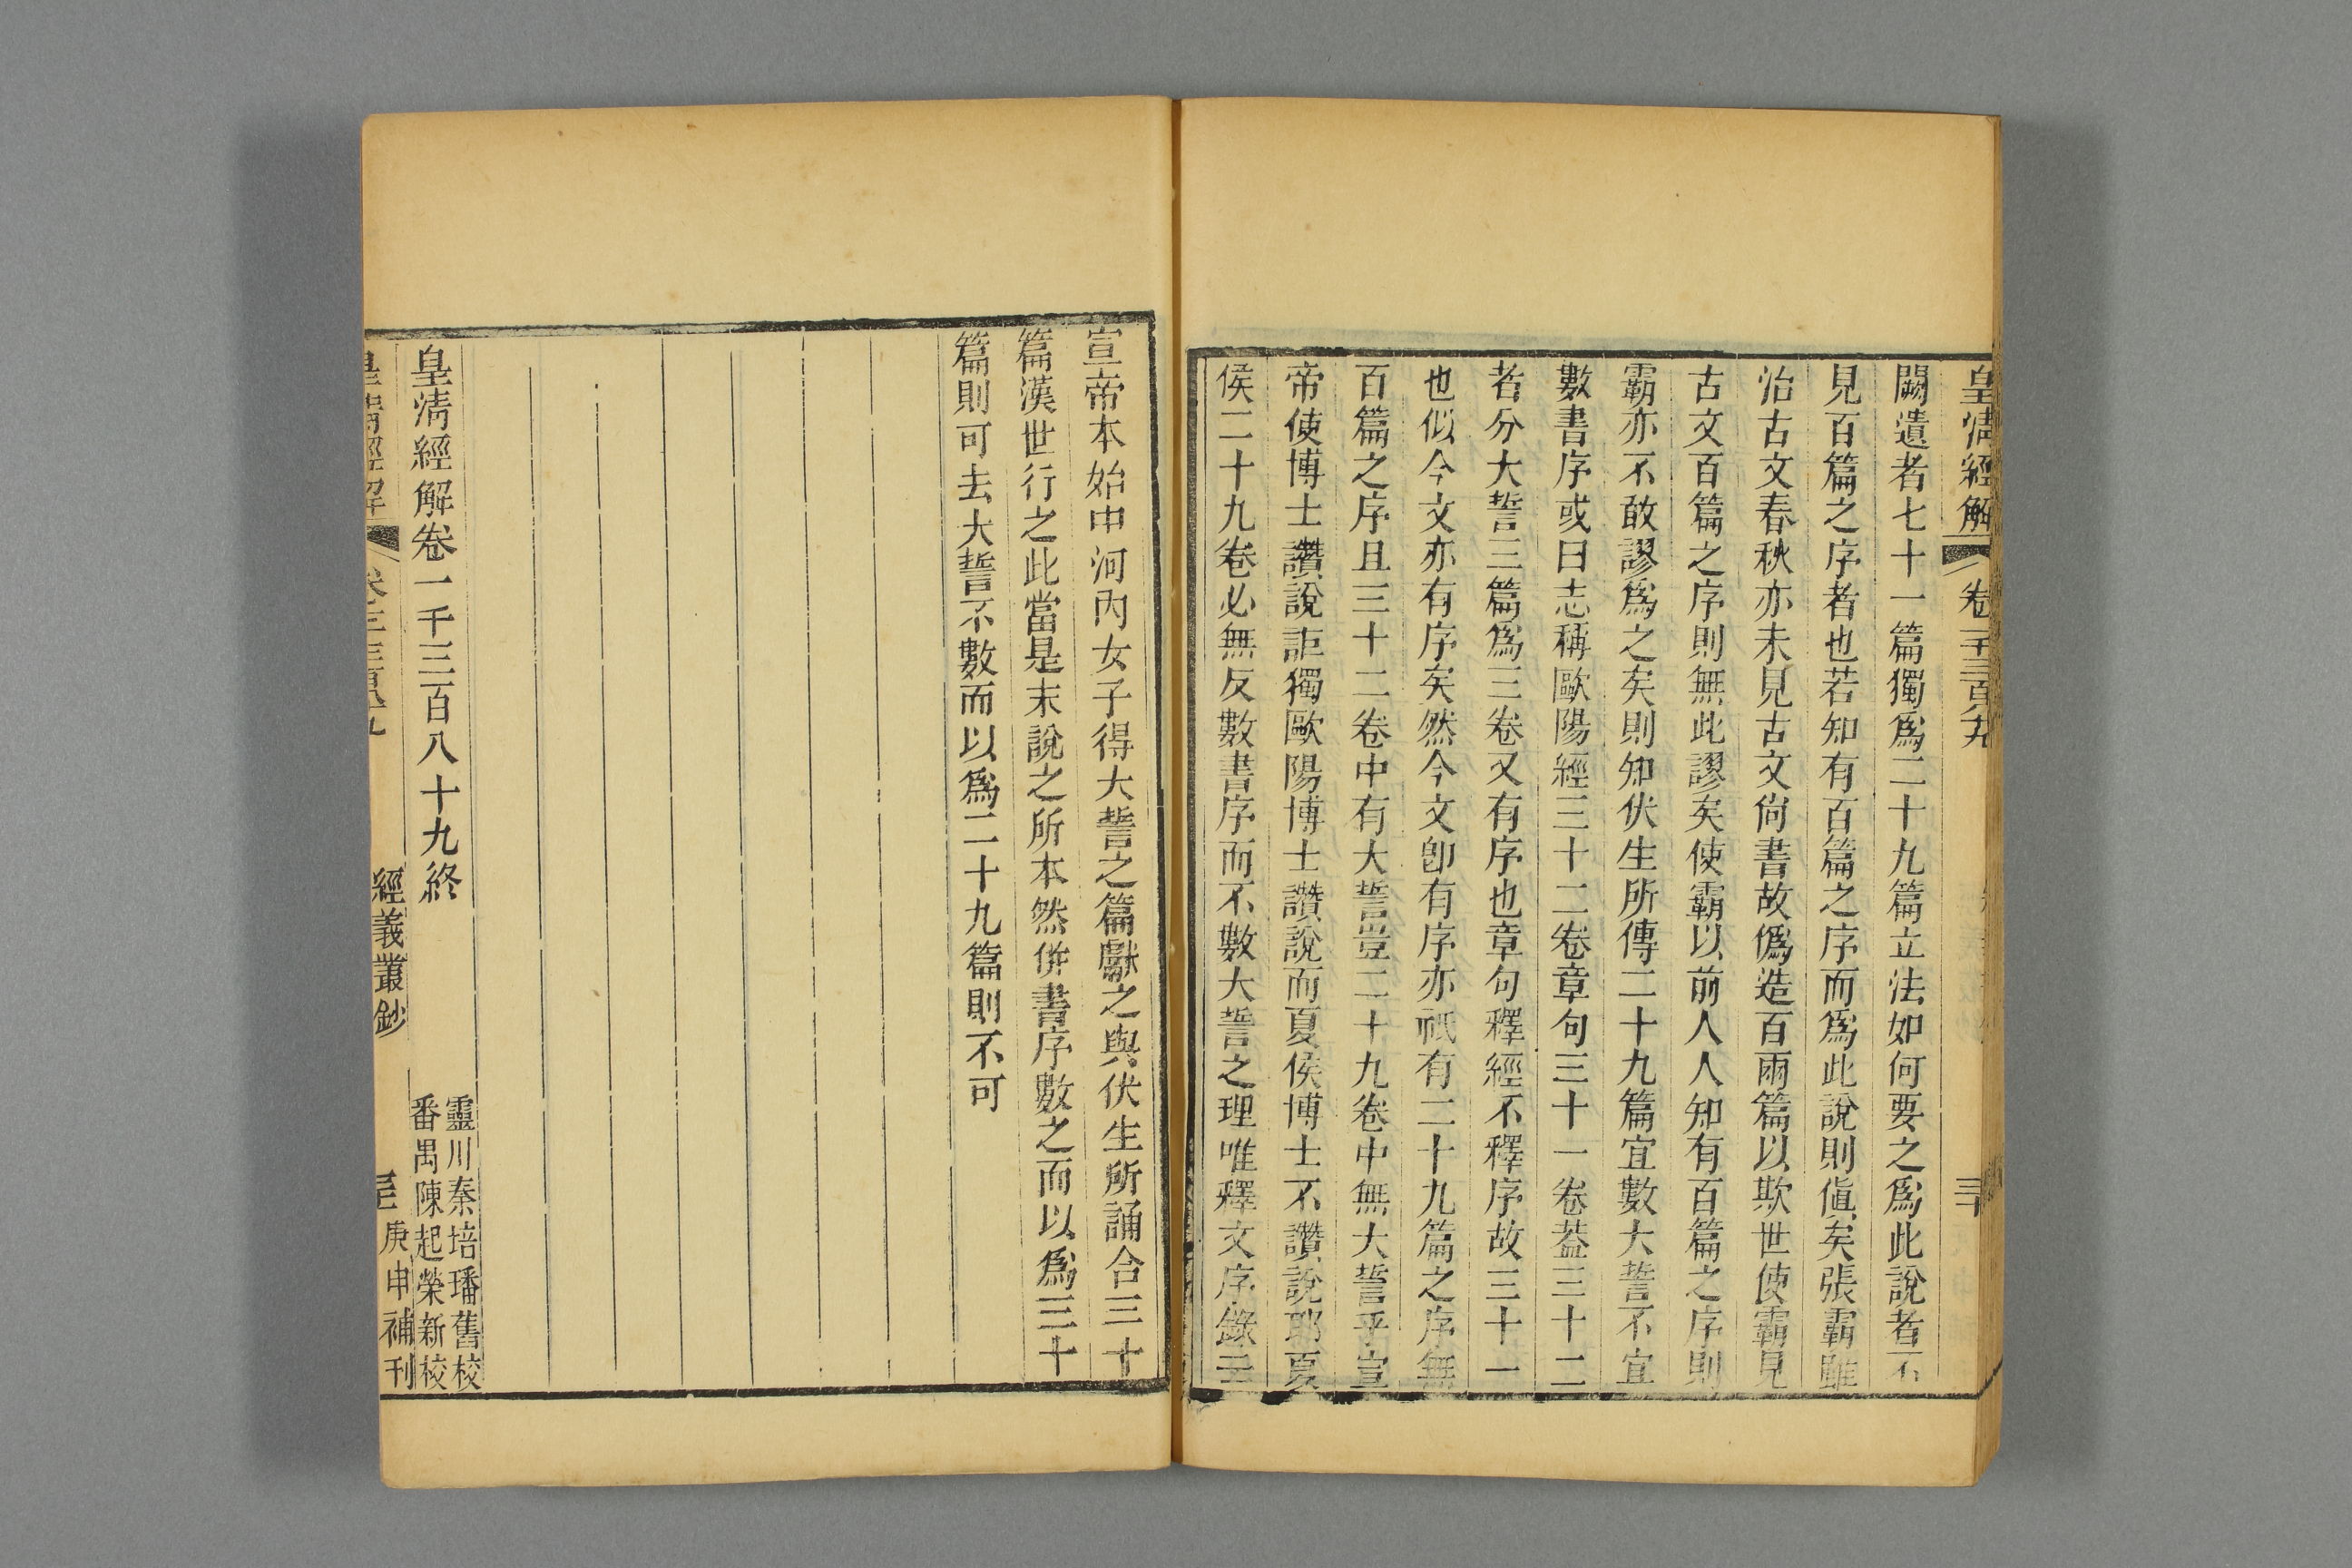 皇清經解 卷一千三百八十九 三十
闕遺者七十一篇獨爲二十九篇立法如何要之爲此說者不
見百篇之序者也若知有百篇之序而爲此說則傎矣張霸雖
治古文春秋亦未見古文尙書故僞造百兩篇以欺世使霸見
古文百篇之序則無此謬矣使霸以前人人知有百篇之序則
霸亦不敢謬爲之矣則知伏生所傳二十九篇宜數大誓不宜
數書序或曰志稱歐陽經三十二卷章句三十一卷葢三十二
者分大誓三篇爲三卷又有序也章句釋經不釋序故三十一
也似今文亦有序矣然今文卽有序亦祇有二十九篇之序無
百篇之序且三十二卷中有大誓豈二十九卷中無大誓乎宣
帝使博士讚說詎獨歐陽博士讚說而夏侯博士不讚說耶夏
侯二十九卷必無反數書序而不數大誓之理唯釋文序錄云
宣帝本始中河內女子得大誓之篇獻之與伏生所誦合三十
篇漢世行之此當是末說之所本然併書序數之而以爲三十
篇則可去大誓不數而以爲二十九篇則不可
皇清經解卷一千三百八十九終
靈川秦培璠舊校
番禺陳起榮新校
皇清經解 經義叢鈔 庚申補刊